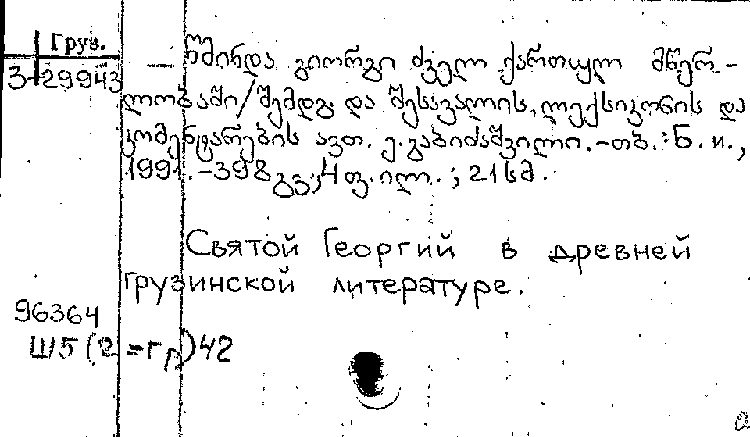 Груз.
3-29943
წმინდა გიორგი ძველ ქართულ მწერ-
ლობაში/შემდგ. და შესავალის, ლექსიკონის და
კომენტარების ავთ. ე. გაბიძაშვილი. -თბ. : Б. и.,
1991. -398 გვ., 4 ფ. ილ. ; 21 სმ.
Святой Георгий в древней
грузинской литературе.
96364
Ш5(2=гр)42